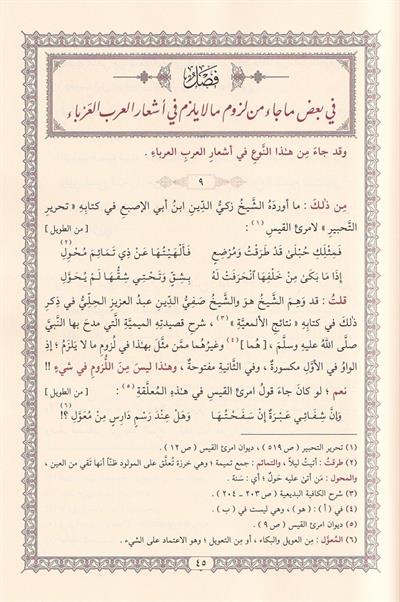 فَصْلٌ
في بعض ما جاء من لزوم ما لا يلزم في أشعار العرب العَرْباء
وقد جاءَ مِن هٰذا النَّوعِ في أشعارِ العربِ العرباءِ .
٩
مِن ذٰلكَ : ما أوردَهُ الشَّيخُ زكيُّ الدِّينِ ابنُ أبي الإصبعِ في كتابِهِ « تحريرِ
التَّحبيرِ » لامرئِ القيسِ (١) : [من الطويل]
فَمِثْلِكِ حُبْلَىٰ قَدْ طَرَقْتُ وَمُرْضِعٍ فَأَلْهَيْتُهَا عَنْ ذِي تَمَائِمَ مُحْوِلِ (٢)
إِذَا مَا بَكَىٰ مِنْ خَلْفِهَا ٱنْحَرَفَتْ لَهُ بِشِقٍّ وَتَحْتِي شِقُّهَا لَمْ يُحَوَّلِ
قلتُ : قد وَهِمَ الشَّيخُ هوَ والشَّيخُ صَفِيُّ الدِّينِ عبدُ العزيزِ الحِلِّيُّ في ذِكرِ
ذٰلكَ في كتابِهِ « نتائجِ الألمعيَّةِ » (٣) ، شرحِ قصيدتِهِ الميميَّةِ الَّتي مدحَ بها النَّبيَّ
صلَّى اللهُ عليهِ وسلَّمَ ، [هُما] (٤) وغيرُهُما ممَّن مثَّلَ بهٰذا في لُزومِ ما لا يَلزمُ ؛ إذِ
الواوُ في الأوَّلِ مكسورةٌ ، وفي الثَّانيةِ مفتوحةٌ ، وهٰذا ليسَ مِنَ اللُّزومِ في شيءٍ !!
نعم ؛ لو كانَ جاءَ قولُ امرئِ القيسِ في هٰذهِ المُعلَّقةِ (٥) : [من الطويل]
وَإِنَّ شِفَائِي عَبْرَةٌ إِنْ سَفَحْتُهَا وَهَلْ عِنْدَ رَسْمٍ دَارِسٍ مِنْ مُعَوَّلِ ؟! (٦)
(١) تحرير التحبير ( ص ٥١٩ ) ، ديوان امرئ القيس ( ص ١٢ ) .
(٢) طرقتُ : أتيتُ ليلاً ، والتمائم : جمع تميمة ؛ وهي خرزة تُعلَّق على المولود ظنّاً أنها تقي من العين ،
والمحول : مَن أتىٰ عليه حَولٌ ؛ أي : سَنة .
(٣) شرح الكافية البديعية ( ص ٢٠٣ - ٢٠٤ ) .
(٤) في ( أ ) : ( هو ) ، وهي ليست في ( ب ) .
(٥) ديوان امرئ القيس ( ص ٩ ) .
(٦) المُعوَّل : مِن العويل والبكاء ، أو مِن التعويل ؛ وهو الاعتماد على الشيء .
٤٥